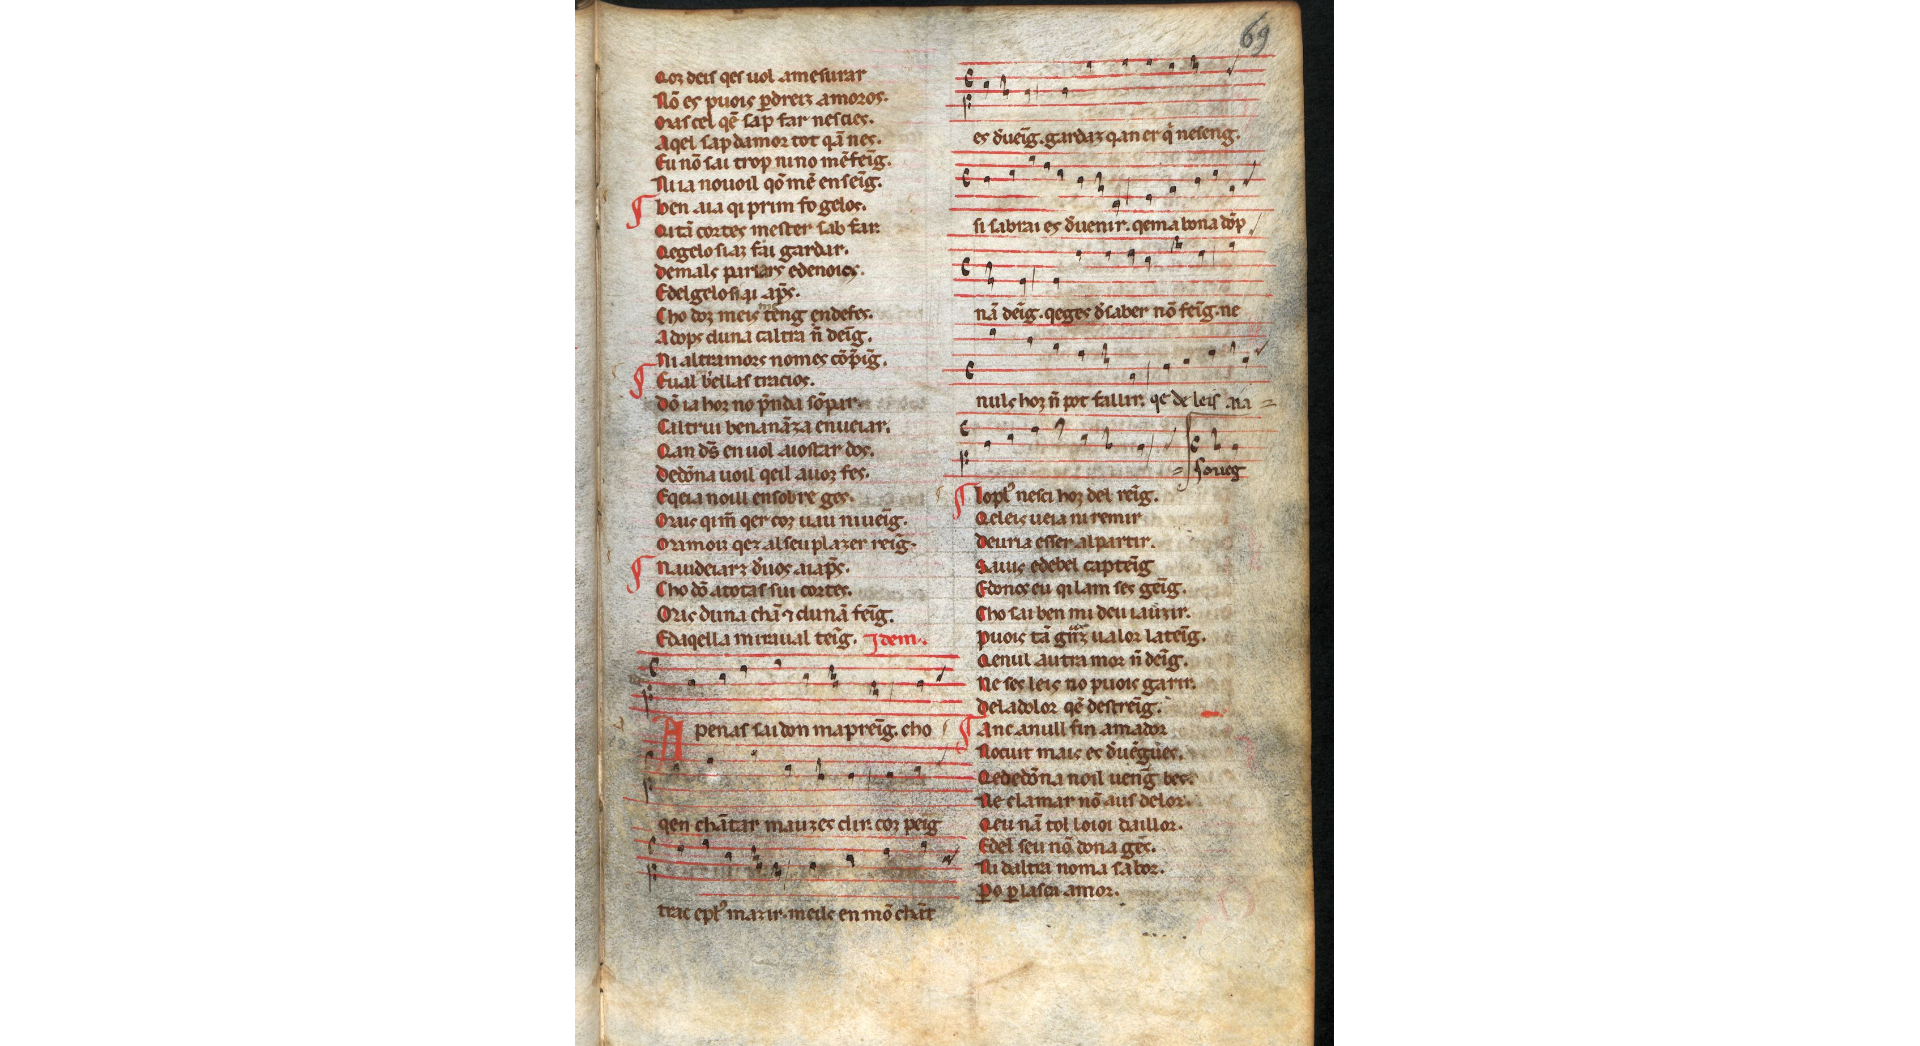 69
Cor deis qes uol amesurar
Nō es puois ꝑdreiz amoros.
Oras cel qē sap far nescies.
Aqel sap damor tot qā nes.
Eu nō sai trop ni no mē feīg.
Ni ia no uoil qō mē enseīg.
ben aia qi prim fo gelos.
Qi tā cortes mester sab far
Qegelosiaz fai gardar.
demals parlars edenoios.
Edelgelosi ai ap̄s.
Cho doz meis teng endefes.
Adops duna caltra n̄ deīg.
Ni altramors nomes
Eual bellas tracios.
Dō ia hoz no
Caltrui benanāza enueiar.
Qan d̄s en uol aiostar dos.
Dedōna uoil qeil auoz fes.
Eqeia noill ensobre ges.
qer coz uau niueīg.
qez alseu plazer reīg.
Naudeiarz d̄uos aiap̄s.
Cho dō atotas sui cortes.
Oras duna chā ⁊ dunā feīg.
Edaqella miraual teīg. Idem.
A penas sai don mapreīg. cho
qen chātar mauzes dir. coz peig
trac epl᾽ mazir. meils en mō chāt
es d̄ueīg. gardaz qan er qi neseng.
si sabrai es d̄uenir. qema bona dōp
nā deīg. qeges d̄saber nō feīg. ne
nuls hoz n̄ pot fallir. qe de leis aia =
= soueg
Iopl᾽ nesci hoz del reīg.
Qeleis ueia ni remir
deuria esser alpartir.
Sauis edebel capteīg
Edoncs eu qi lam ses geīg.
Cho sai ben mi deu iauzir.
puois tā ualor lateīg.
Qenul autra mor n̄ deīg.
Ne ses leis no puois garir.
deladolor qē destreīg.
Anc anull fin amador
Nocuit mais es d̄uēgues.
Qededōna noil uenḡ bes.
Ne clamar nō aus delor.
Qeu nā tol loioi daillor.
Edel seu nō dona gēs.
Ni daltra noma sabor.
ꝑo ꝑ lasci amor.